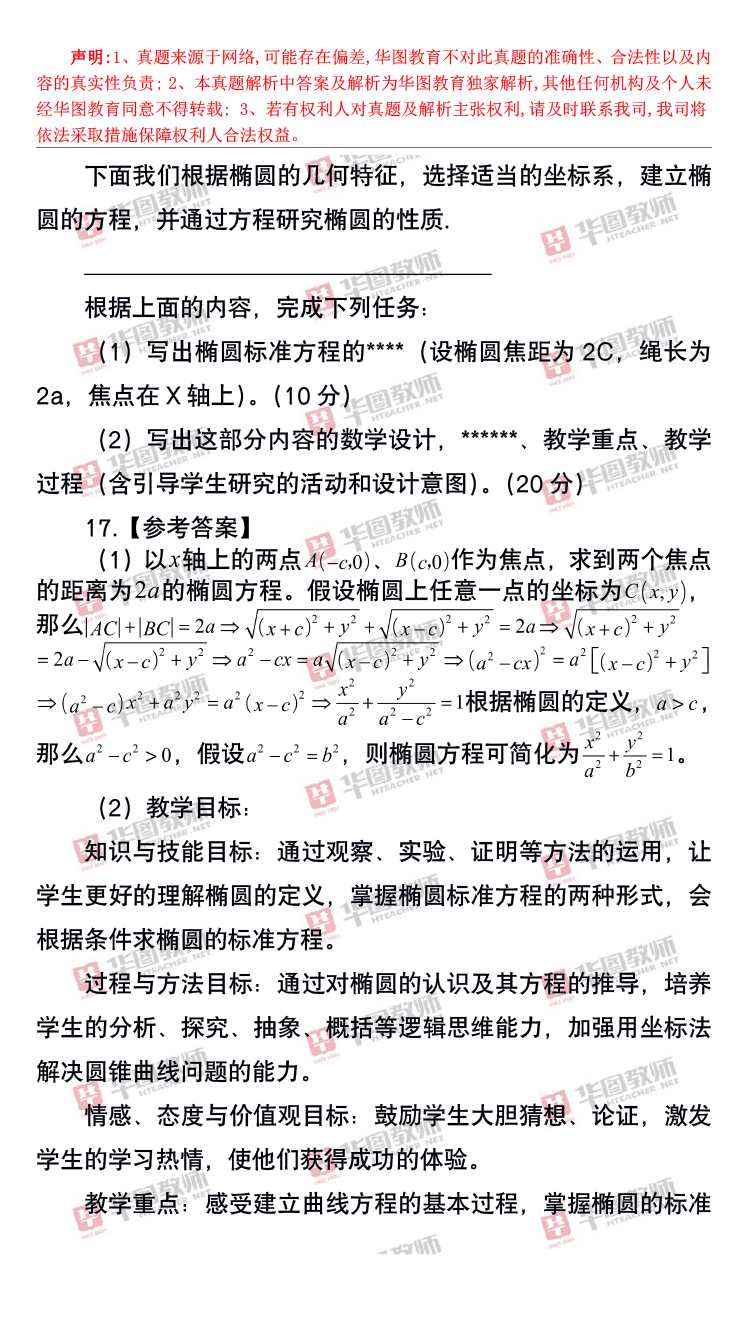 声明:1、真题来源于网络,可能存在偏差,华图教育不对此真题的准确性、合法性以及内
容的真实性负责; 2、本真题解析中答案及解析为华图教育独家解析,其他任何机构及个人未
经华图教育同意不得转载; 3、若有权利人对真题及解析主张权利,请及时联系我司,我司将
依法采取措施保障权利人合法权益。
下面我们根据椭圆的几何特征，选择适当的坐标系，建立椭
圆的方程，并通过方程研究椭圆的性质.
根据上面的内容，完成下列任务：
（1）写出椭圆标准方程的****（设椭圆焦距为 2C，绳长为
2a，焦点在 X 轴上）。（10 分）
（2）写出这部分内容的数学设计，******、教学重点、教学
过程（含引导学生研究的活动和设计意图）。（20 分）
17.【参考答案】
（1）以x轴上的两点A(−c,0)、B(c,0)作为焦点，求到两个焦点
的距离为2a的椭圆方程。假设椭圆上任意一点的坐标为C(x,y)，
那么|AC|+|BC|=2a⇒√((x+c)²+y²)+√((x−c)²+y²)=2a⇒√((x+c)²+y²)
=2a−√((x−c)²+y²)⇒a²−cx=a√((x−c)²+y²)⇒(a²−cx)²=a²[(x−c)²+y²]
⇒(a²−c)x²+a²y²=a²(x−c)²⇒x²/a²+y²/(a²−c²)=1根据椭圆的定义，a>c，
那么a²−c²>0，假设a²−c²=b²，则椭圆方程可简化为x²/a²+y²/b²=1。
（2）教学目标：
知识与技能目标：通过观察、实验、证明等方法的运用，让
学生更好的理解椭圆的定义，掌握椭圆标准方程的两种形式，会
根据条件求椭圆的标准方程。
过程与方法目标：通过对椭圆的认识及其方程的推导，培养
学生的分析、探究、抽象、概括等逻辑思维能力，加强用坐标法
解决圆锥曲线问题的能力。
情感、态度与价值观目标：鼓励学生大胆猜想、论证，激发
学生的学习热情，使他们获得成功的体验。
教学重点：感受建立曲线方程的基本过程，掌握椭圆的标准
华图教师
HTEACHER.NET